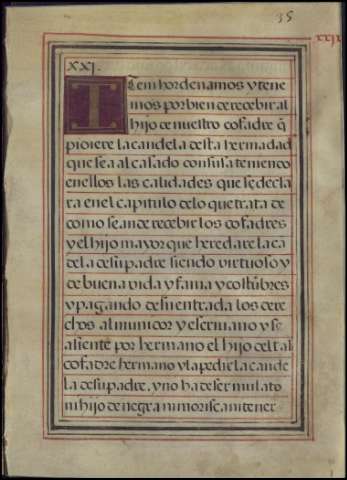 35
xxix
XXI.
Tem hordenamos y tene
mos por bien de recebir al
hijo de nuestro cofadre q̃
pidiere la candela desta hermadad
que sea al casado con su satemenco
en ellos las calidades que se decla
ra en el capitulo de lo que trata de
como se an de recebir los cofadres
y el hijo mayor que heredare la ca
dela de su padre siendo virtuoso y
de buena vida y fama y costũbres
y pagando de su entrada los dere
chos al munidor y escrivano y se
asiente por hermano el hijo del tal
cofadre hermano y la pedie la cande
la de su padre. y no ha de ser mulato
ni hijo de negra ni morisca ni tener